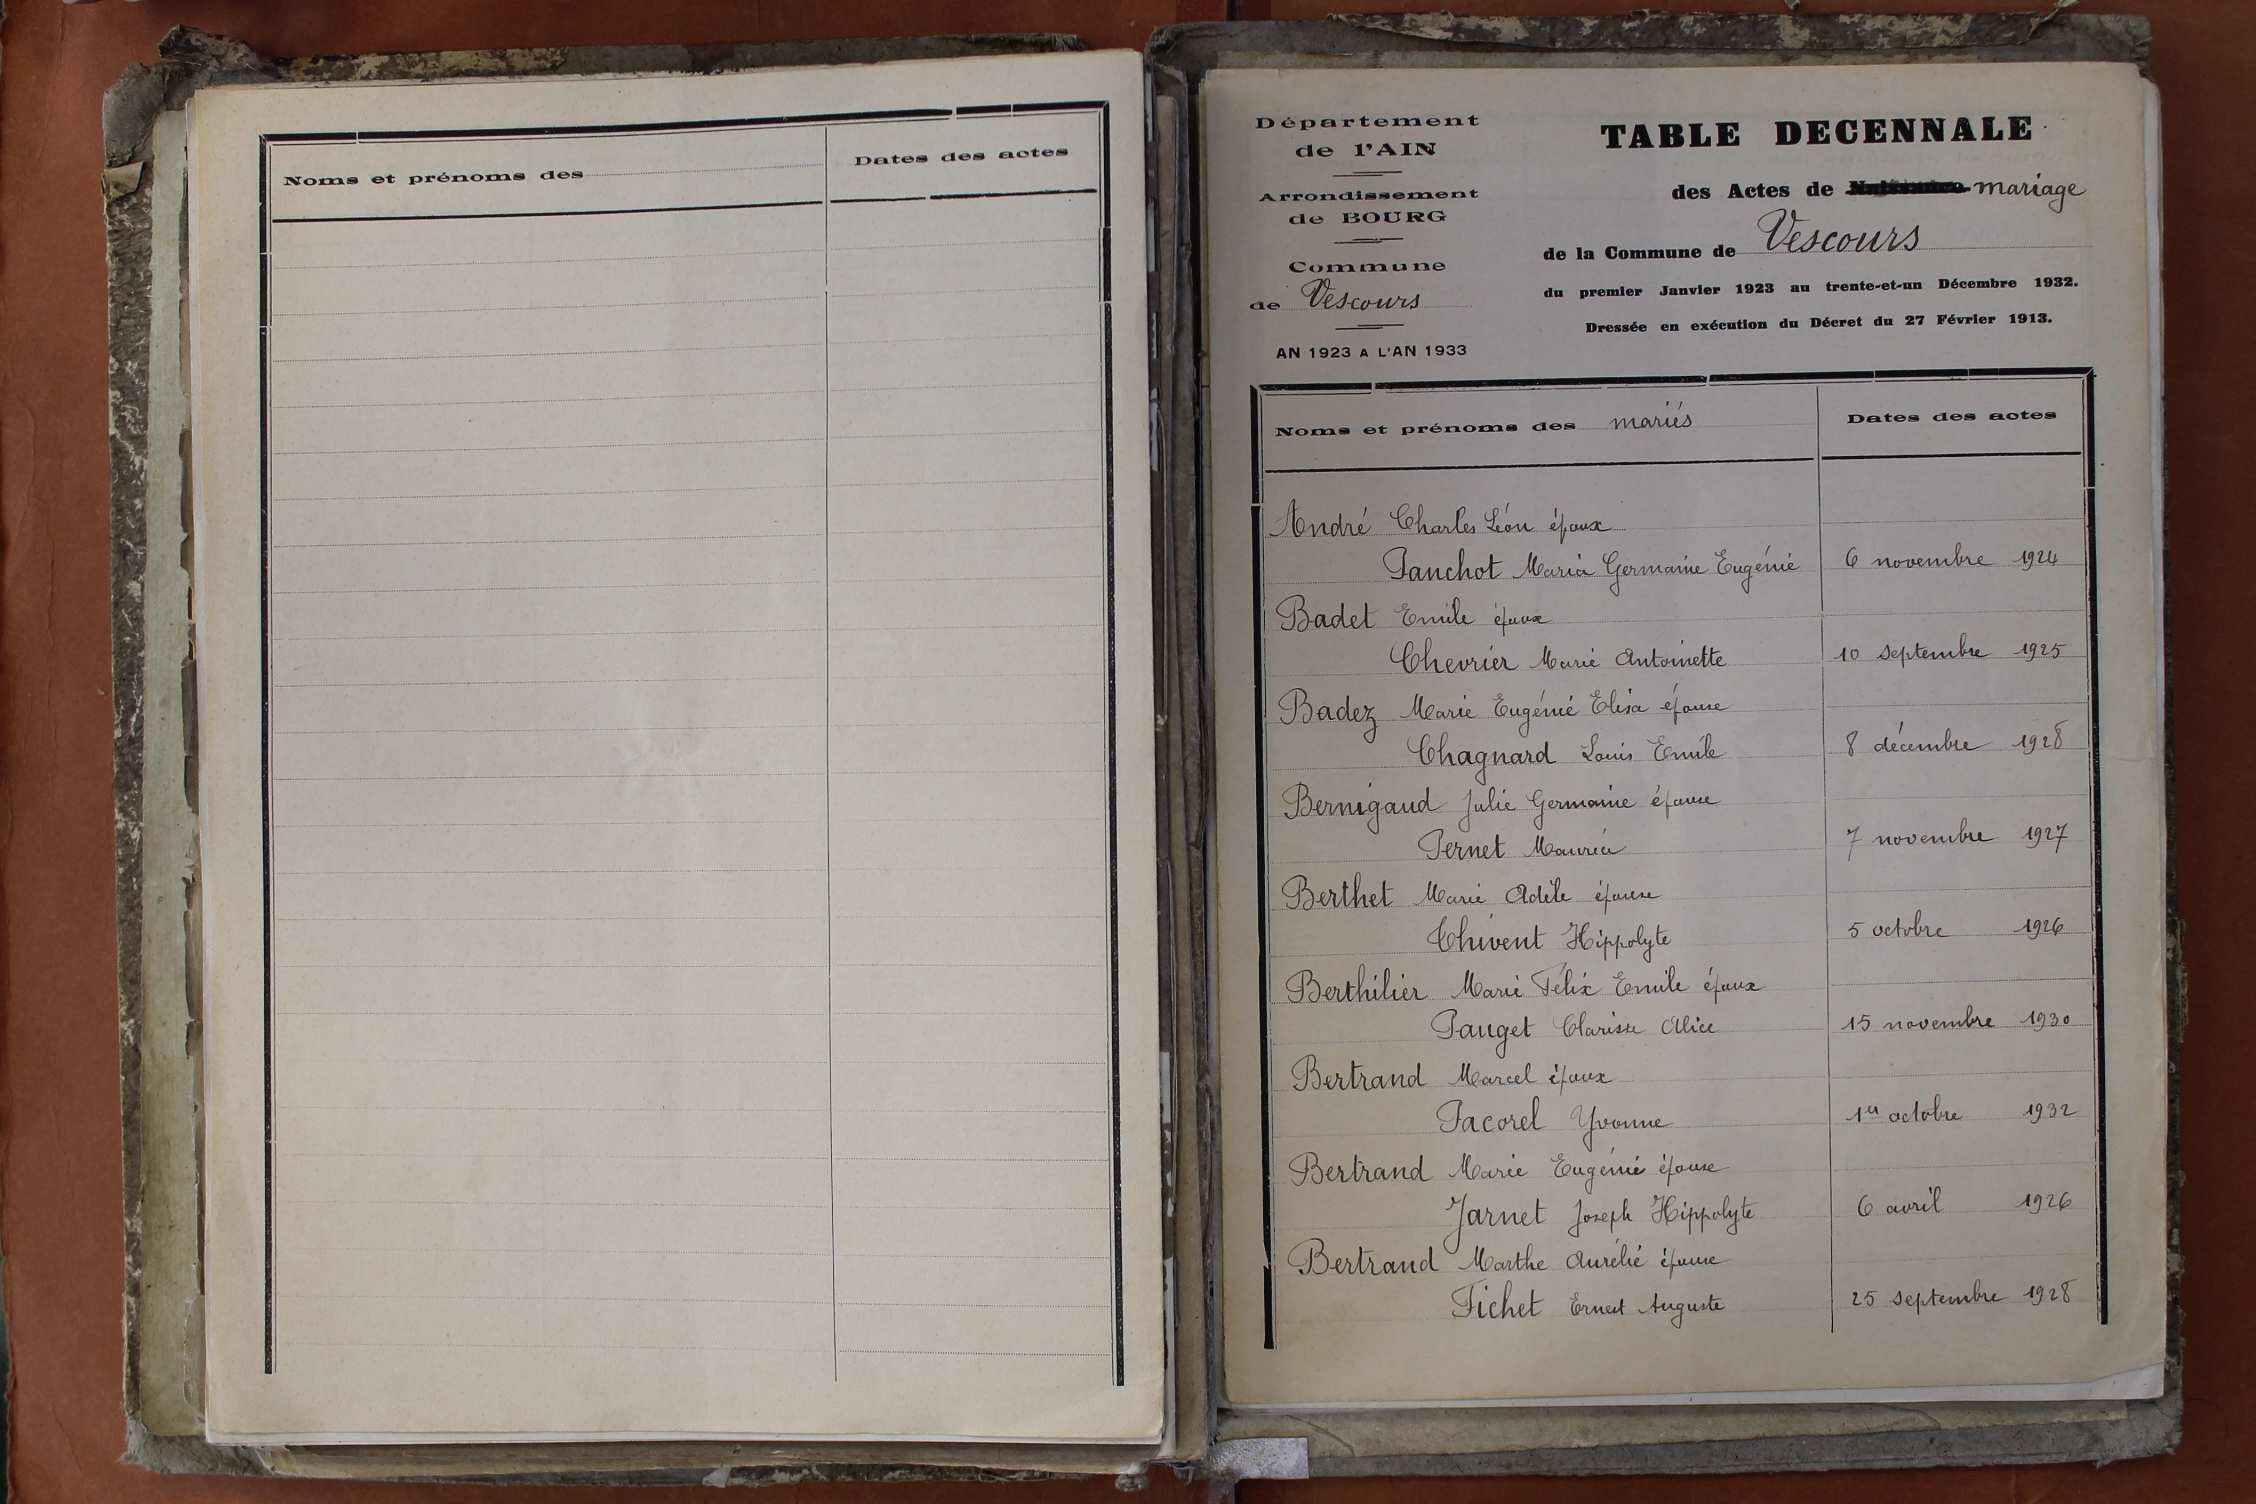 Noms et prénoms des
Dates des actes
Département
de l'AIN
Arrondissement
de BOURG
Commune
de Vescours
AN 1923 A L'AN 1933
TABLE DECENNALE
des Actes de Naissance mariage
de la Commune de Vescours
du premier Janvier 1923 au trente-et-un Décembre 1932.
Dressée en exécution du Décret du 27 Février 1913.
Noms et prénoms des mariés
Dates des actes
André Charles Léon époux
Panchot Maria Germaine Eugénie 6 novembre 1924
Badet Emile époux
Chevrier Marie Antoinette 10 septembre 1925
Badez Marie Eugénie Elisa épouse
Chagnard Louis Emile 8 décembre 1928
Bernigaud Julie Germaine épouse
Pernet 7 novembre 1927
Berthet Marie Adèle épouse
Thivent Hippolyte 5 octobre 1926
Berthilier Marie Félix Emile époux
Pauget Clarisse Alice 15 novembre 1930
Bertrand Marcel époux
Pacorel Yvonne 1er octobre 1932
Bertrand Marie Eugénie épouse
Jarnet Joseph Hippolyte 6 avril 1926
Bertrand Marthe Aurélie épouse
Fichet Ernest Auguste 25 septembre 1928